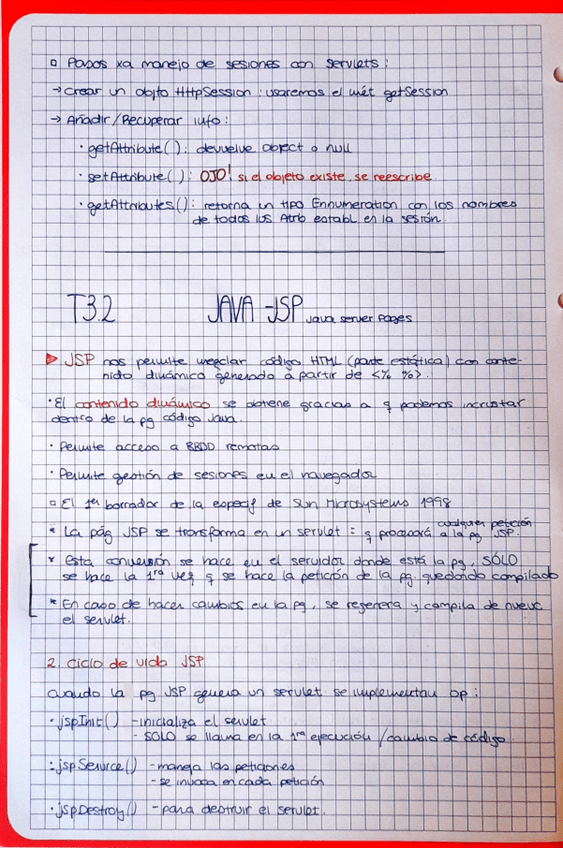 ▫ Pasos xa manejo de sesiones con servlets:
→ Crear un objto HttpSession : usaremos el mét getSession
→ Añadir/Recuperar info:
· getAttribute( ): devuelve object o null
· setAttribute( ): OJO! si el objeto existe, se reescribe.
· getAttributes(): retorna un tipo Ennumeration con los nombres
de todos los Atrib establ en la sesión.
T3.2 JAVA - JSP Java server Pages
▶ JSP nos permite mezclar código HTML (parte estática) con conte-
nido dinámico generado a partir de <% %>.
· El contenido dinámico se obtiene gracias a q podemos incrustar
dentro de la pg código Java.
· Permite acceso a BBDD remotas
· Permite gestión de sesiones en el navegador
▫ El 1er borrador de la especif de Sun Microsystems 1998
* La pág JSP se transforma en un servlet : q procesará cualquier petición
a la pg JSP.
* Esta conversión se hace en el servidor donde está la pg, SÓLO
se hace la 1ra vez q se hace la petición de la pg. quedando compilado
* En caso de hacer cambios en la pg, se regenera y compila de nuevo
el servlet.
2. Ciclo de vida JSP
Cuando la pg JSP genera un servlet se implementan op:
· jspInit() - inicializa el servlet
- SOLO se llama en la 1ra ejecución / cambio de código
· jspService() - maneja las peticiones
- se invoca en cada petición
· jspDestroy() - para destruir el servlet.